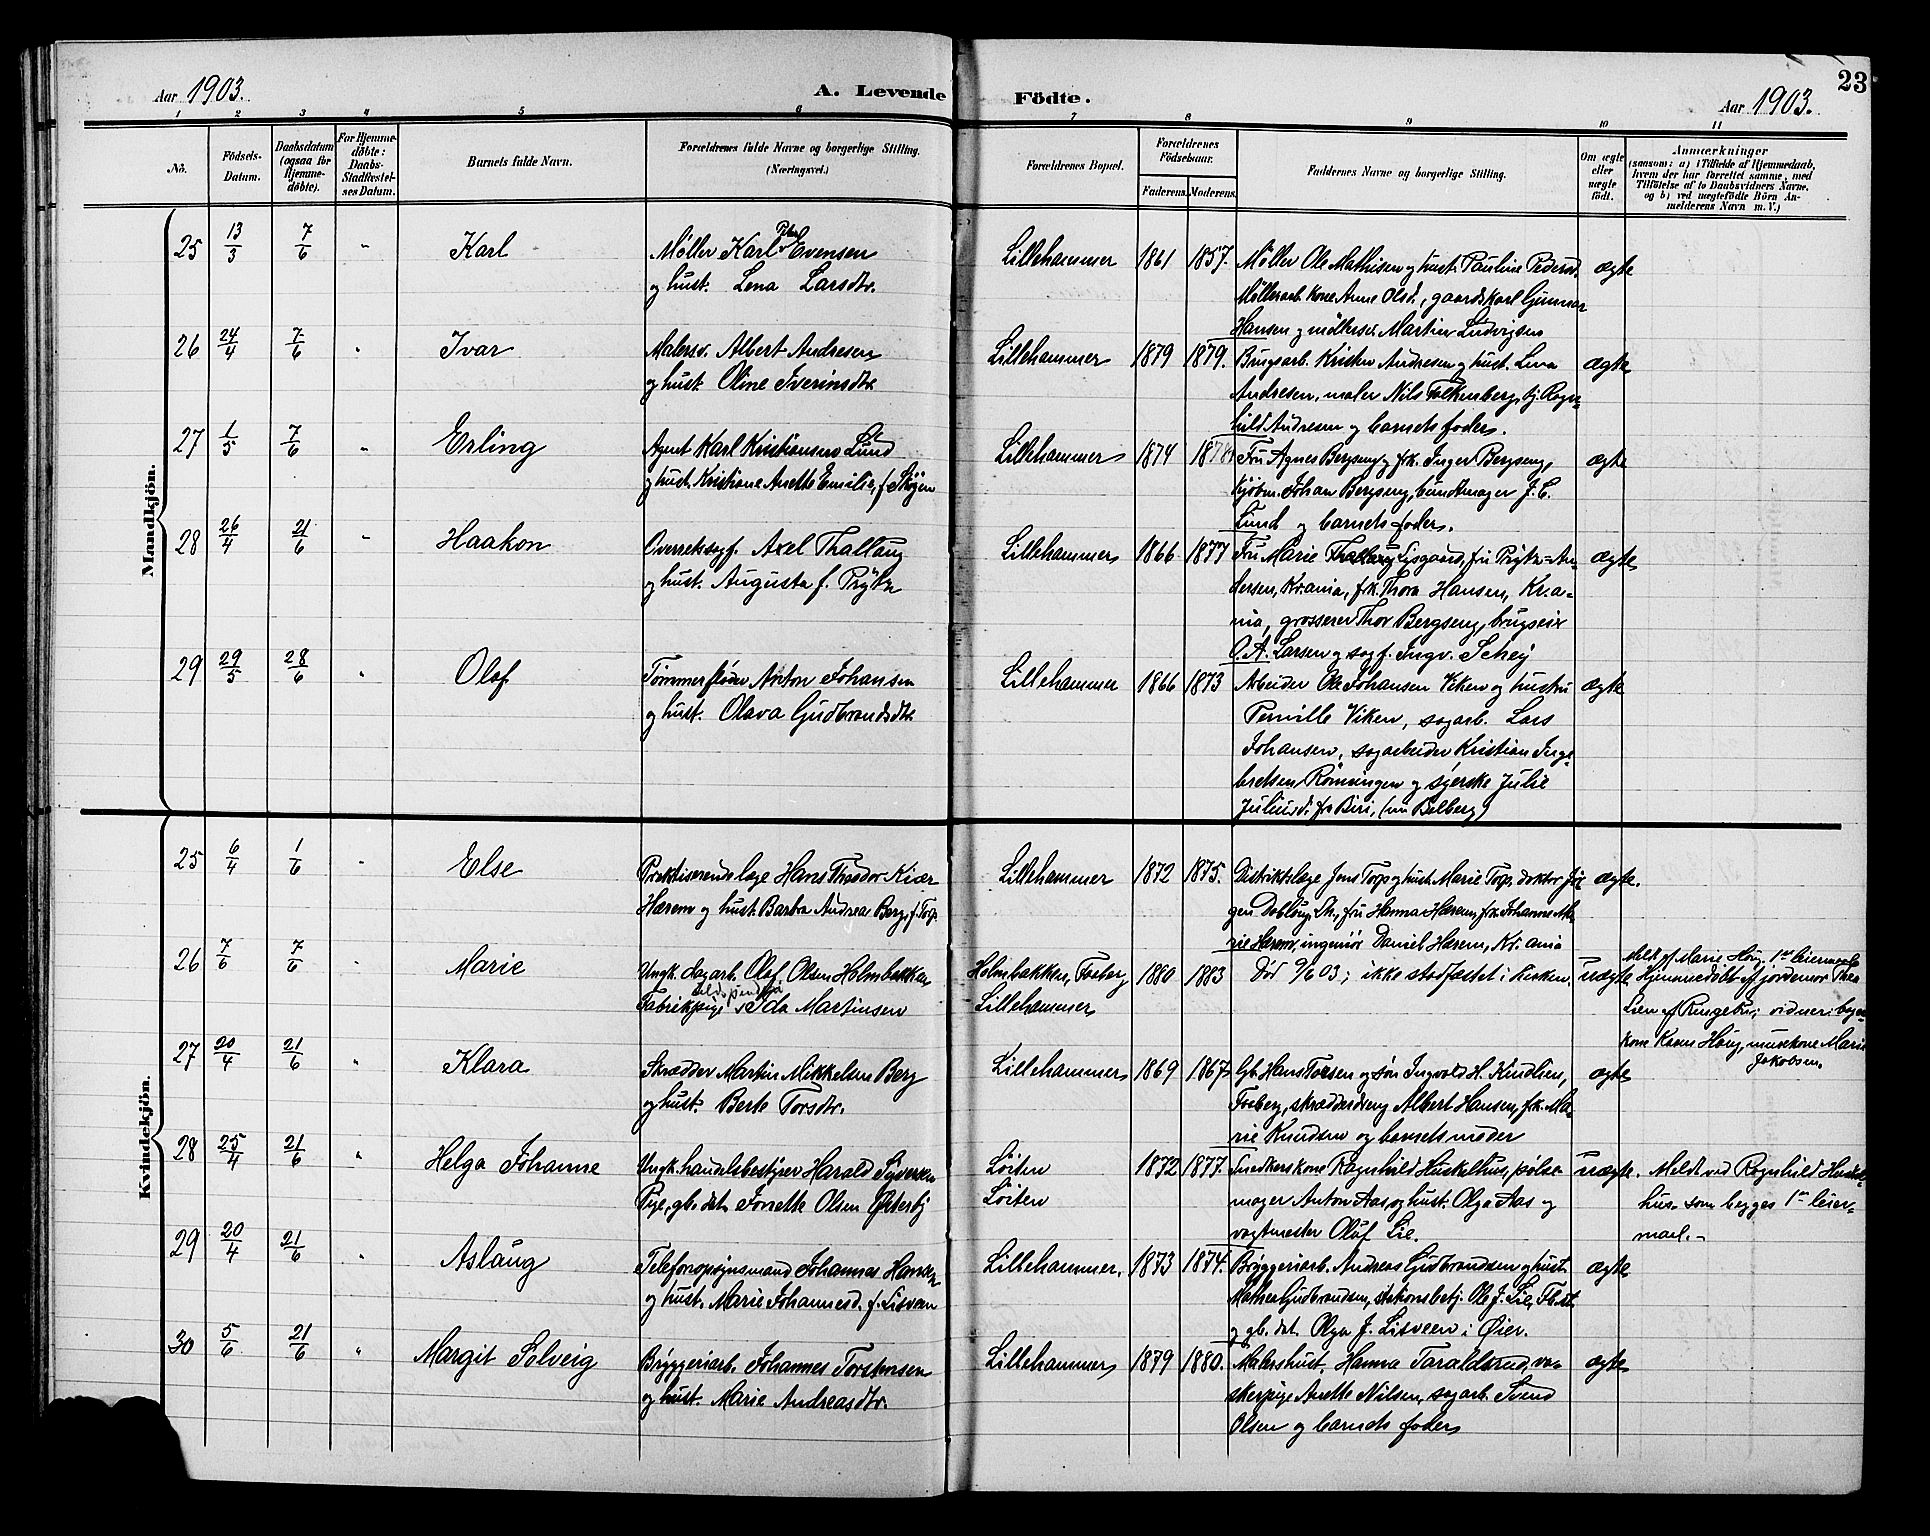 23
Aar 1903.
A. Levende Födte.
Aar 1903.
1 2 3 4 5 6 7 8 9 10 11
No.
Födsels-Datum.
Daabsdatum (ogsaa for Hjemmedøbte).
For Hjemmedøbte: Daabs-Stadfæstelses Datum.
Barnets fulde Navn.
Forældrenes fulde Navne og borgerlige Stilling. (Næringsvei.)
Forældrenes Bopæl.
Forældrenes Födselsaar.
Faderens. Moderens.
Faddernes Navne og borgerlige Stilling.
Om ægte eller uægte födt.
Anmærkninger
(saasom: a) i Tilfælde af Hjemmedaab,
hvem der har forrettet samme, med
Tilföielse af to Daabsvidners Navne.
og b) ved uægtefödte Börn An-
melderens Navn m. V.)
Mandkjön.
25 13/3 7/6 " Karl
Møller Karl Evensen
og hust. Lena Larsdtr.
Lillehammer 1861 1857.
Møller Ole Mathisen og hust. Pauline Pedersd.
Møllerarb. kone Anne Olsd., gaardskarl Gunnar
Hansen og møllersv. Martin Ludvigsen
ægte
26 24/4 7/6 " Ivar
Malersv. Albert Andresen
og hust. Oline Iverinsdtr.
Lillehammer 1879 1879.
Brugsarb. Kristen Andresen og hust. Lena
Andresen, maler Nils Falkenberg, pj. Ragn-
hild Andresen og barnets fader.
ægte
27 1/5 7/6 " Erling
Agent Karl Kristiansen Lund
og hust. Kristiane Anette Emilie, f. Skogen
Lillehammer 1874 1878
Fru Agnes Bergseng, frk. Inger Bergseng,
kjøbm. Johan Bergseng, buntmager J. C.
Lund og barnets fader.
ægte
28 26/4 21/6 " Haakon
Overretssagf. Axel Thallaug
og hust. Augusta f. Prytz
Lillehammer 1866 1877
Fru Marie Thallaug Lysgaard, fru Prytz-An-
dersen, Kr.ania, frk. Thora Hansen, Kr.a-
nia, grosserer Thor Bergseng, brugseier
O. A. Larsen og sagf. Ingv. Schey
ægte
29 29/5 28/6 " Olaf
Tømmerfløder Anton Johansen
og hust. Olava Gudbrandsdtr
Lillehammer 1866 1873
Arbeider Ole Johansen Viken og hustru
Pernille Viken, sagarb. Lars
Johansen, sagarbeider Kristian Inge-
bretsen Rønningen og syerske Julie
Juliusd. fr. Biri, (nu Belberg)
ægte
Kvindekjön.
25 6/4 1/6 " Else
Praktiserende læge Hans Theodor Kiær
Hærem og hust. Barbra Andrea Berg, f. Torp.
Lillehammer 1872 1875.
Distriktslæge Jens Torp og hust. Marie Torp, doktor Jør-
gen Dobloug, Th., fru Hanna Hærem, frk. Johanne Ma-
rie Hærem, ingeniør Daniel Hærem, Kr.ania
ægte.
26 7/6 7/6 " Marie
Ungk. dagarb. Olaf Olsen Holmbakken
Fabrikpige Ida Martinsen
Holmbakken, Faaberg
Lillehammer
1880 1883
Død 9/6 03; ikke stadfæstet i kirken.
uægte
Meldt af Marie Høng, 1ste leiermaal
Hjemmedøbt af jordemor Thea
Lien af Ringebu; vidner:
kone Karen Høng, murekone Marie
Jakobsen.
27 20/4 21/6 " Klara
Skrædder Martin Mikkelsen Berg
og hust. Berte Torsdtr.
Lillehammer 1869 1867
Gb. Hans Torsen og søn Ingvald H. Knudsen,
Faaberg, skrædderdreng Albert Hansen, frk. Ma-
rie Knudsen og barnets moder
ægte
28 25/4 21/6 " Helga Johanne
Ungk. handelsbestyrer Harald Syversen
Pige, gb. dat. Jonette Olsen Østerby
Løiten
Løiten
1872 1877.
Snedkerskone Ragnhild Huskelhus, pølse-
mager Anton Aas og hust. Olga Aas og
vagtmester Oluf Lie.
uægte.
Meldt ved Ragnhild Huskel-
hus. som begges 1ste leier-
maal.-
29 20/4 21/6 " Aslaug
Telefonopsynsmand Johannes Hansen
og hust. Marie Johannesd. f. Lisveen
Lillehammer. 1873 1874.
Bryggeriarb. Andreas Gudbrandsen og hust.
Mathea Gudbrandsen, stationsbetj. Ole J. Lie, Fb. st.
og gb. dat. Olga J. Lisveen i Øier.
ægte
30 5/6 21/6 " Margit Solveig
Bryggeriarb. Johannes Torstensen
og hust. Marie Andreasdtr.
Lillehammer 1879 1880.
Malershust. Hanna Taraldsrud, va-
skerpige Anette Nilsen, sagarb. Svend
Olsen og barnets fader
ægte